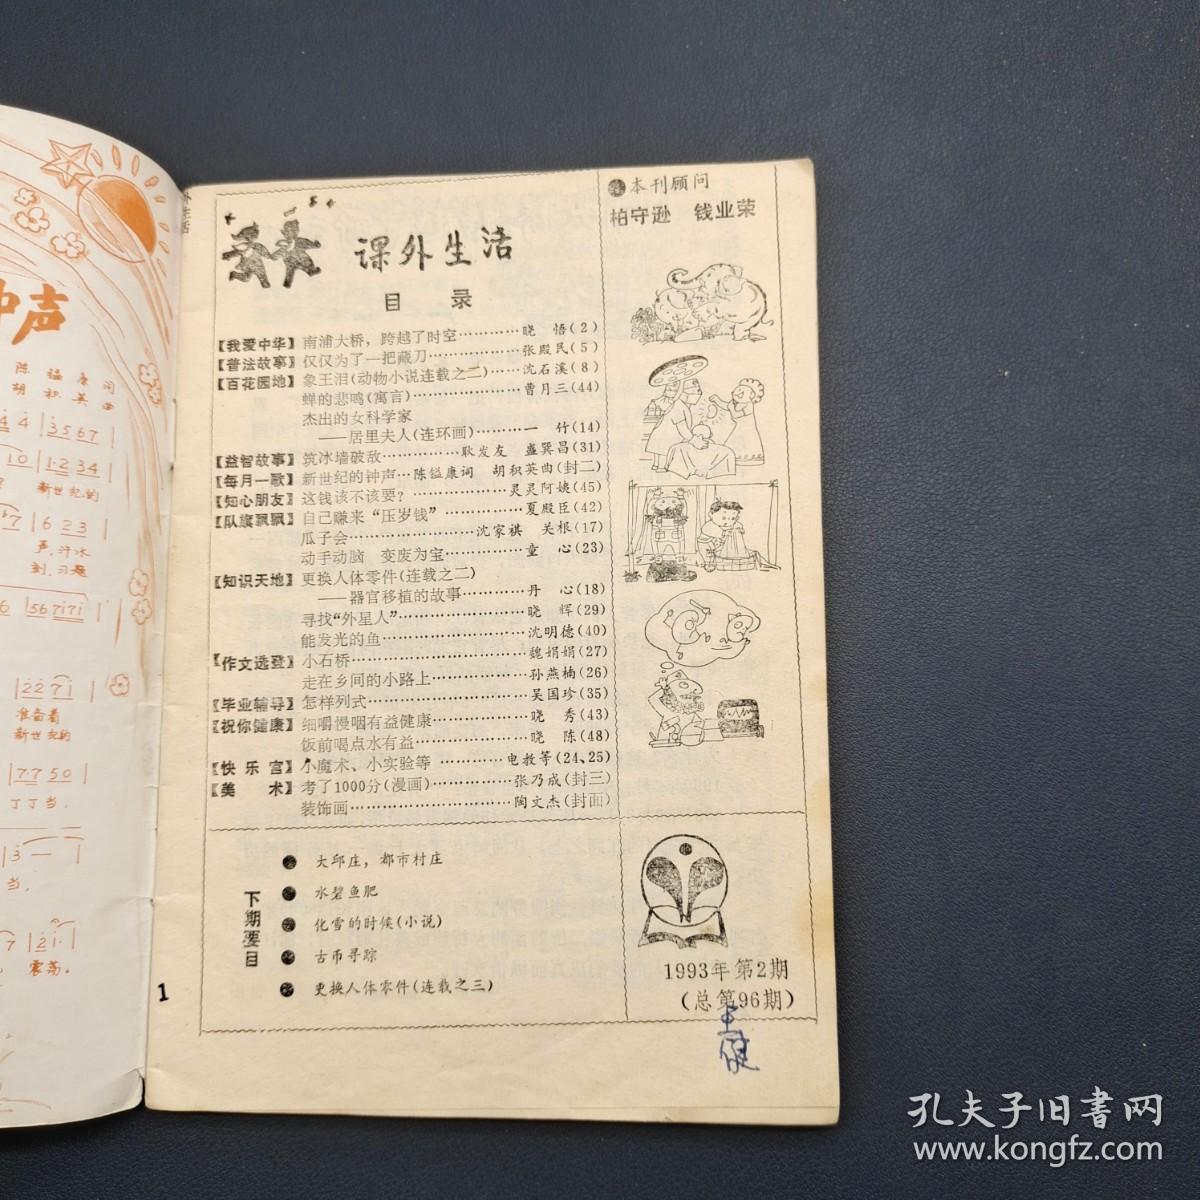 中声
4 4 | 3567 |
1 0 | 1·2 34 |
新世纪的
| 6 2 3 |
声,汗水
刻,习题
6 | 567171 |
| 22 71 |
准备着
新世纪的
| 7·7 50 |
丁丁当.
当,
7 | 2 1· |
震荡.
外生活
课外生活
目 录
【我爱中华】南浦大桥,跨越了时空…………晓 悟(2)
【普法故事】仅仅为了一把藏刀………………张殿民(5)
【百花园地】象王泪(动物小说连载之二)……沈石溪(8)
蝉的悲鸣(寓言)………………曹月三(44)
杰出的女科学家
——居里夫人(连环画)…………一 竹(14)
【益智故事】筑冰墙破敌……………耿发友 盛巽昌(31)
【每月一歌】新世纪的钟声…陈镒康词 胡积英曲(封二)
【知心朋友】这钱该不该要?………………灵灵阿姨(45)
【队旗飘飘】自己赚来“压岁钱”……………夏殿臣(42)
瓜子会……………………沈家祺 关根(17)
动手动脑 变废为宝……………童 心(23)
【知识天地】更换人体零件(连载之二)
——器官移植的故事…………丹 心(18)
寻找“外星人”……………………晓 辉(29)
能发光的鱼………………………沈明德(40)
【作文选登】小石桥……………………………魏娟娟(27)
走在乡间的小路上………………孙燕楠(26)
【毕业辅导】怎样列式…………………………吴国珍(35)
【祝你健康】细嚼慢咽有益健康………………晓 秀(43)
饭前喝点水有益…………………晓 陈(48)
【快乐宫】小魔术、小实验等…………电教等(24、25)
【美 术】考了1000分(漫画)……………张乃成(封三)
装饰画……………………………陶文杰(封面)
本刊顾问
柏守逊 钱业荣
下期要目
大邱庄,都市村庄
水碧鱼肥
化雪的时候(小说)
古币寻踪
更换人体零件(连载之三)
1993年第2期
(总第96期)
1
孔夫子旧书网
www.kongfz.com